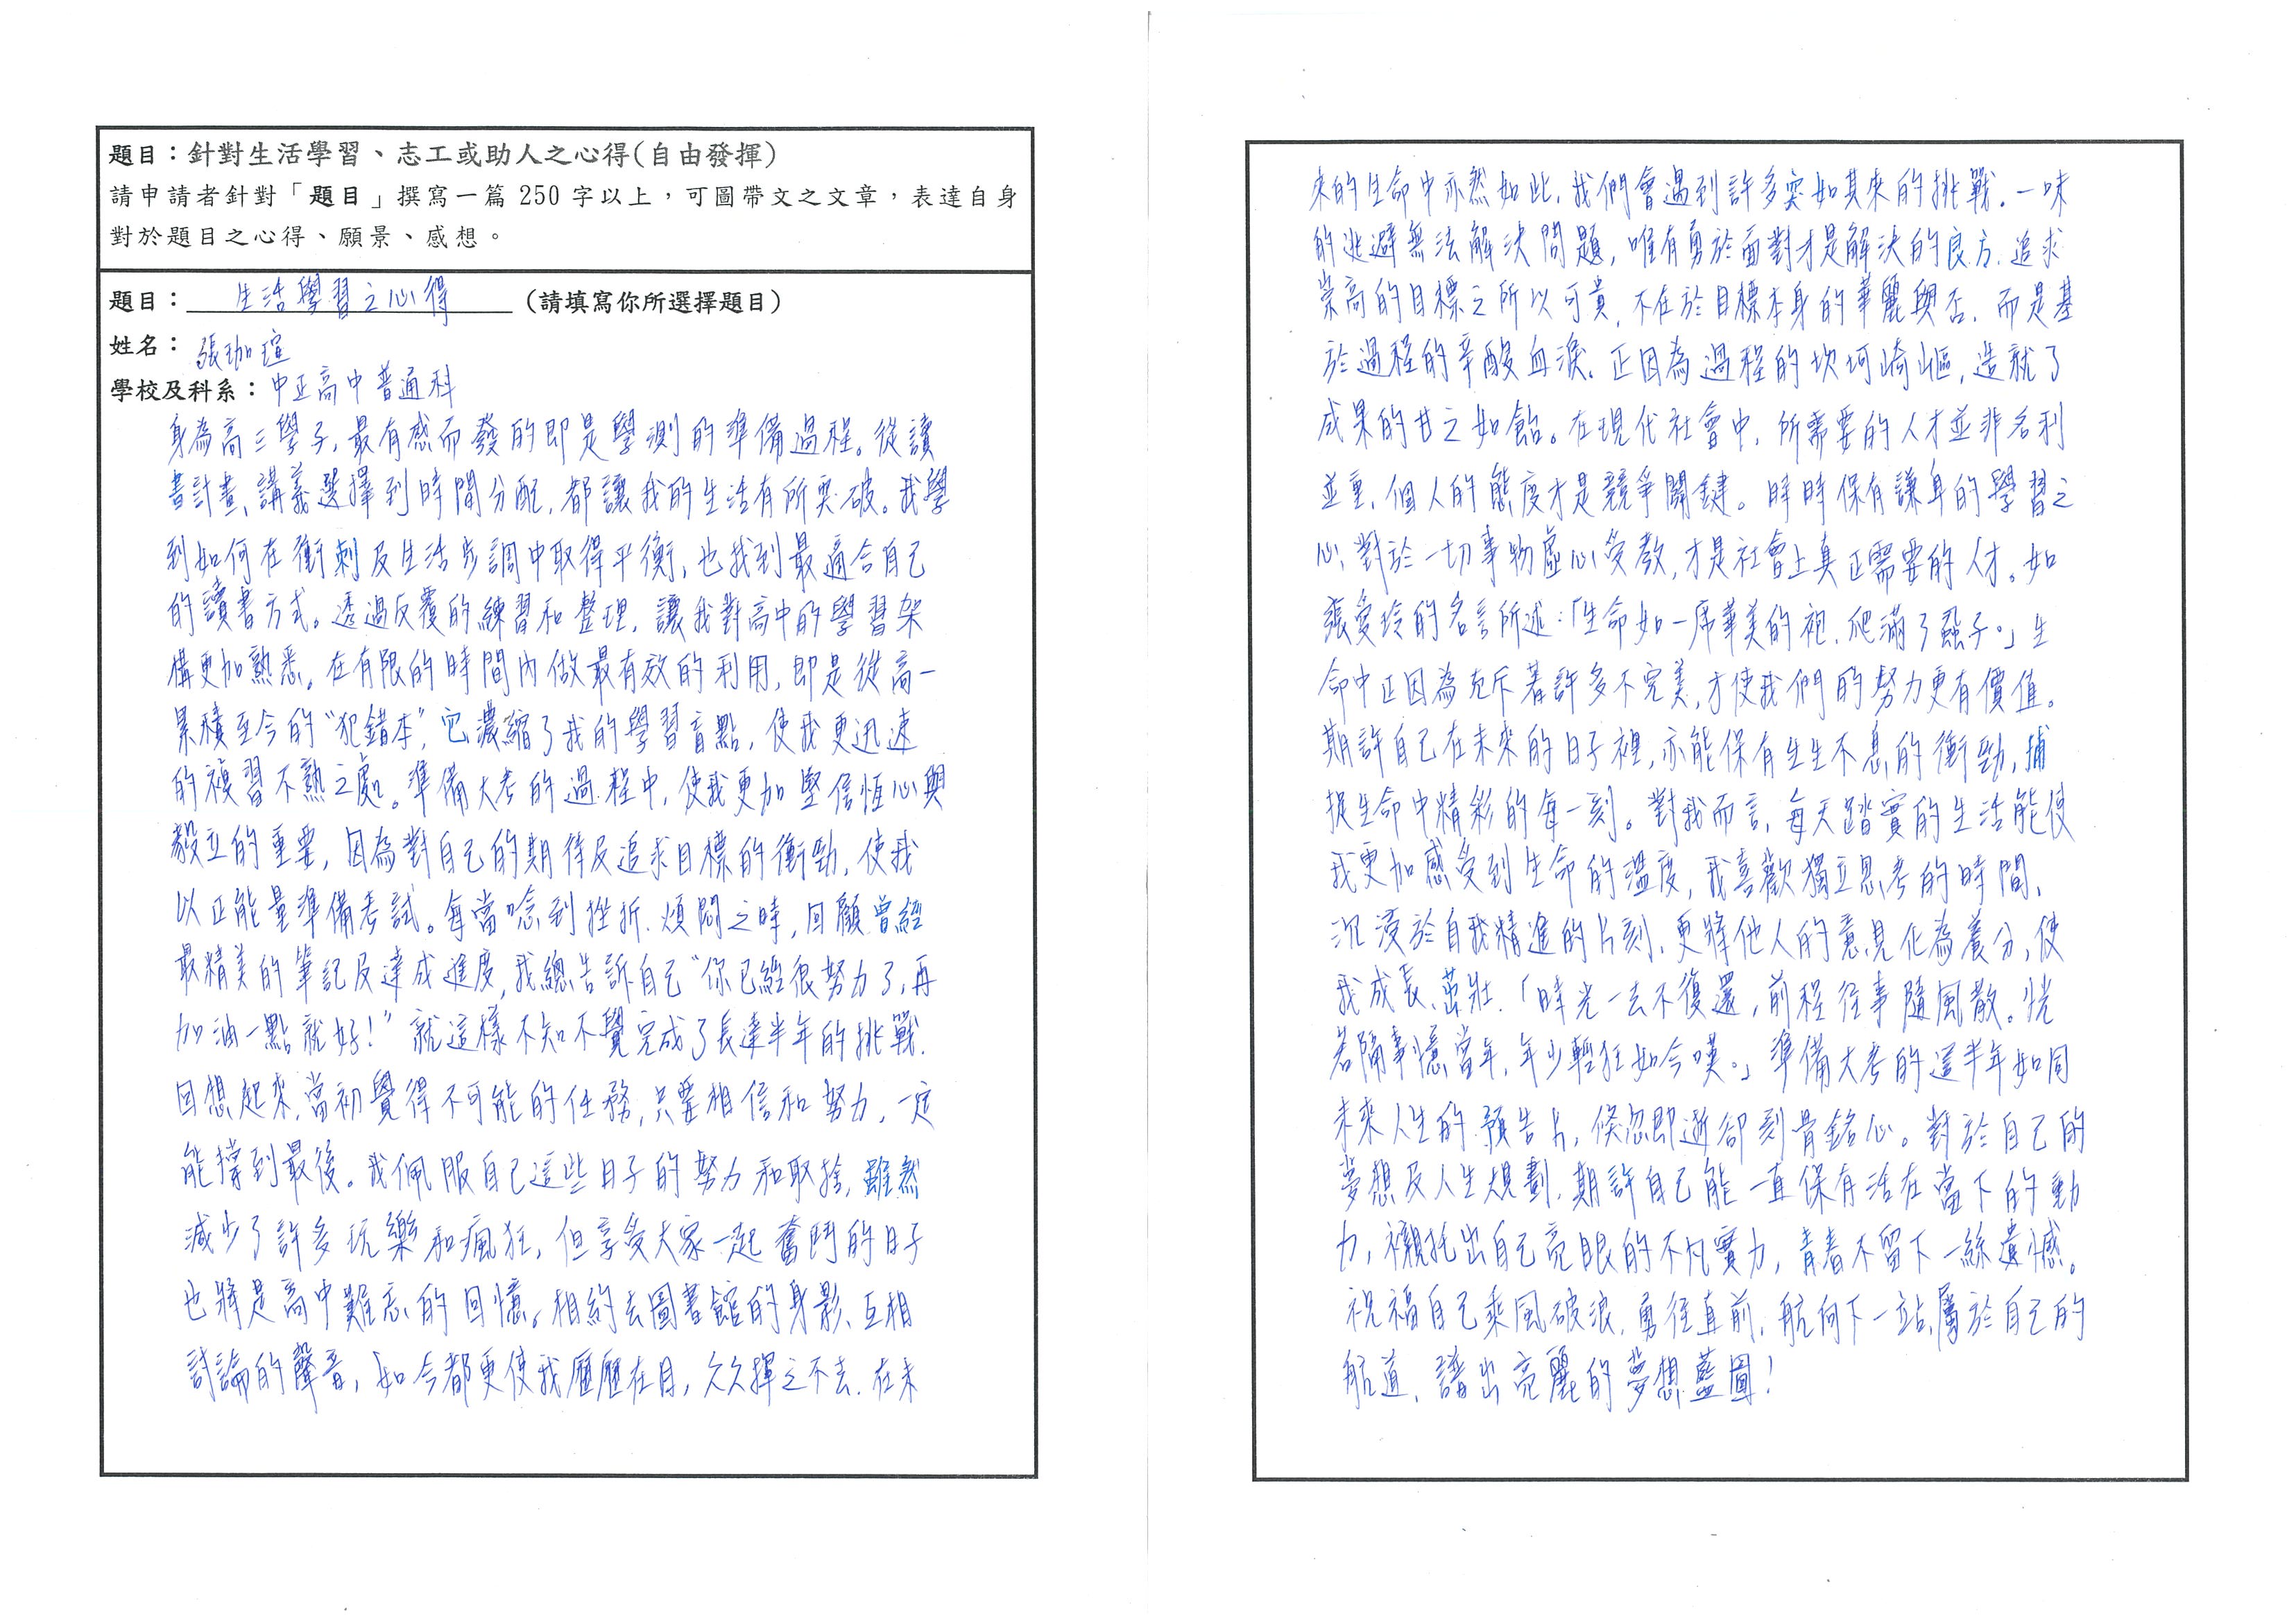 題目：針對生活學習、志工或助人之心得(自由發揮)
請申請者針對「題目」撰寫一篇 250 字以上，可圖帶文之文章，表達自身
對於題目之心得、願景、感想。
題目：生活學習之心得(請填寫你所選擇題目)
姓名：張珈瑄
學校及科系：中正高中普通科
身為高三學子，最有感而發的即是學測的準備過程。從讀
書計畫、講義選擇到時間分配，都讓我的生活有所突破。我學
到如何在衝刺及生活步調中取得平衡，也找到最適合自己
的讀書方式。透過反覆的練習和整理，讓我對高中的學習架
構更加熟悉。在有限的時間內做最有效的利用，即是從高一
累積至今的"犯錯本"，它濃縮了我的學習盲點，使我更迅速
的複習不熟之處。準備大考的過程中，使我更加堅信恆心與
毅立的重要，因為對自己的期待及追求目標的衝勁，使我
以正能量準備考試。每當唸到挫折、煩悶之時，回顧曾經
最精美的筆記及達成進度，我總告訴自己"你已經很努力了，再
加油一點就好！"就這樣不知不覺完成了長達半年的挑戰．
回想起來，當初覺得不可能的任務，只要相信和努力，一定
能撐到最後。我佩服自己這些日子的努力和取捨，雖然
減少了許多玩樂和瘋狂，但享受大家一起奮鬥的日子
也將是高中難忘的回憶。相約去圖書館的身影、互相
討論的聲音，如今都更使我歷歷在目，久久揮之不去．在未
來的生命中亦然如此，我們會遇到許多突如其來的挑戰．一味
的逃避無法解決問題，唯有勇於面對才是解決的良方．追求
崇高的目標之所以可貴，不在於目標本身的華麗與否．而是基
於過程的辛酸血淚．正因為過程的坎坷崎嶇，造就了
成果的甘之如飴。在現代社會中，所需要的人才並非名利
並重，個人的態度才是競爭關鍵。時時保有謙卑的學習之
心，對於一切事物虛心受教，才是社會上真正需要的人才。如
張愛玲的名言所述：「生命如一席華美的袍，爬滿了蝨子。」生
命中正因為充斥著許多不完美，才使我們的努力更有價值。
期許自己在未來的日子裡，亦能保有生生不息的衝勁，捕
捉生命中精彩的每一刻。對我而言，每天踏實的生活能使
我更加感受到生命的溫度，我喜歡獨立思考的時間，
沉浸於自我精進的片刻，更將他人的意見化為養分，使
我成長、茁壯．「時光一去不復還，前程往事隨風散。恍
若隔事憶當年，年少輕狂如今嘆。」準備大考的這半年如同
未來人生的預告片，倏忽即逝卻刻骨銘心。對於自己的
夢想及人生規劃，期許自己能一直保有活在當下的動
力，襯托出自己亮眼的不凡實力，青春不留下一絲遺憾。
祝福自己乘風破浪，勇往直前，航向下一站屬於自己的
航道，譜出亮麗的夢想藍圖！